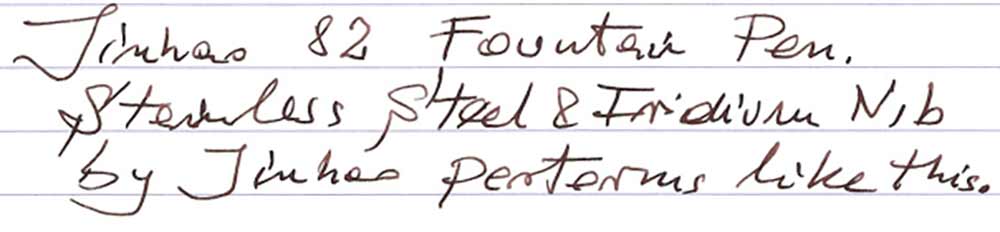 Jinhao 82 Fountain Pen.
Stainless Steel & Iridium Nib
by Jinhao performs like this.